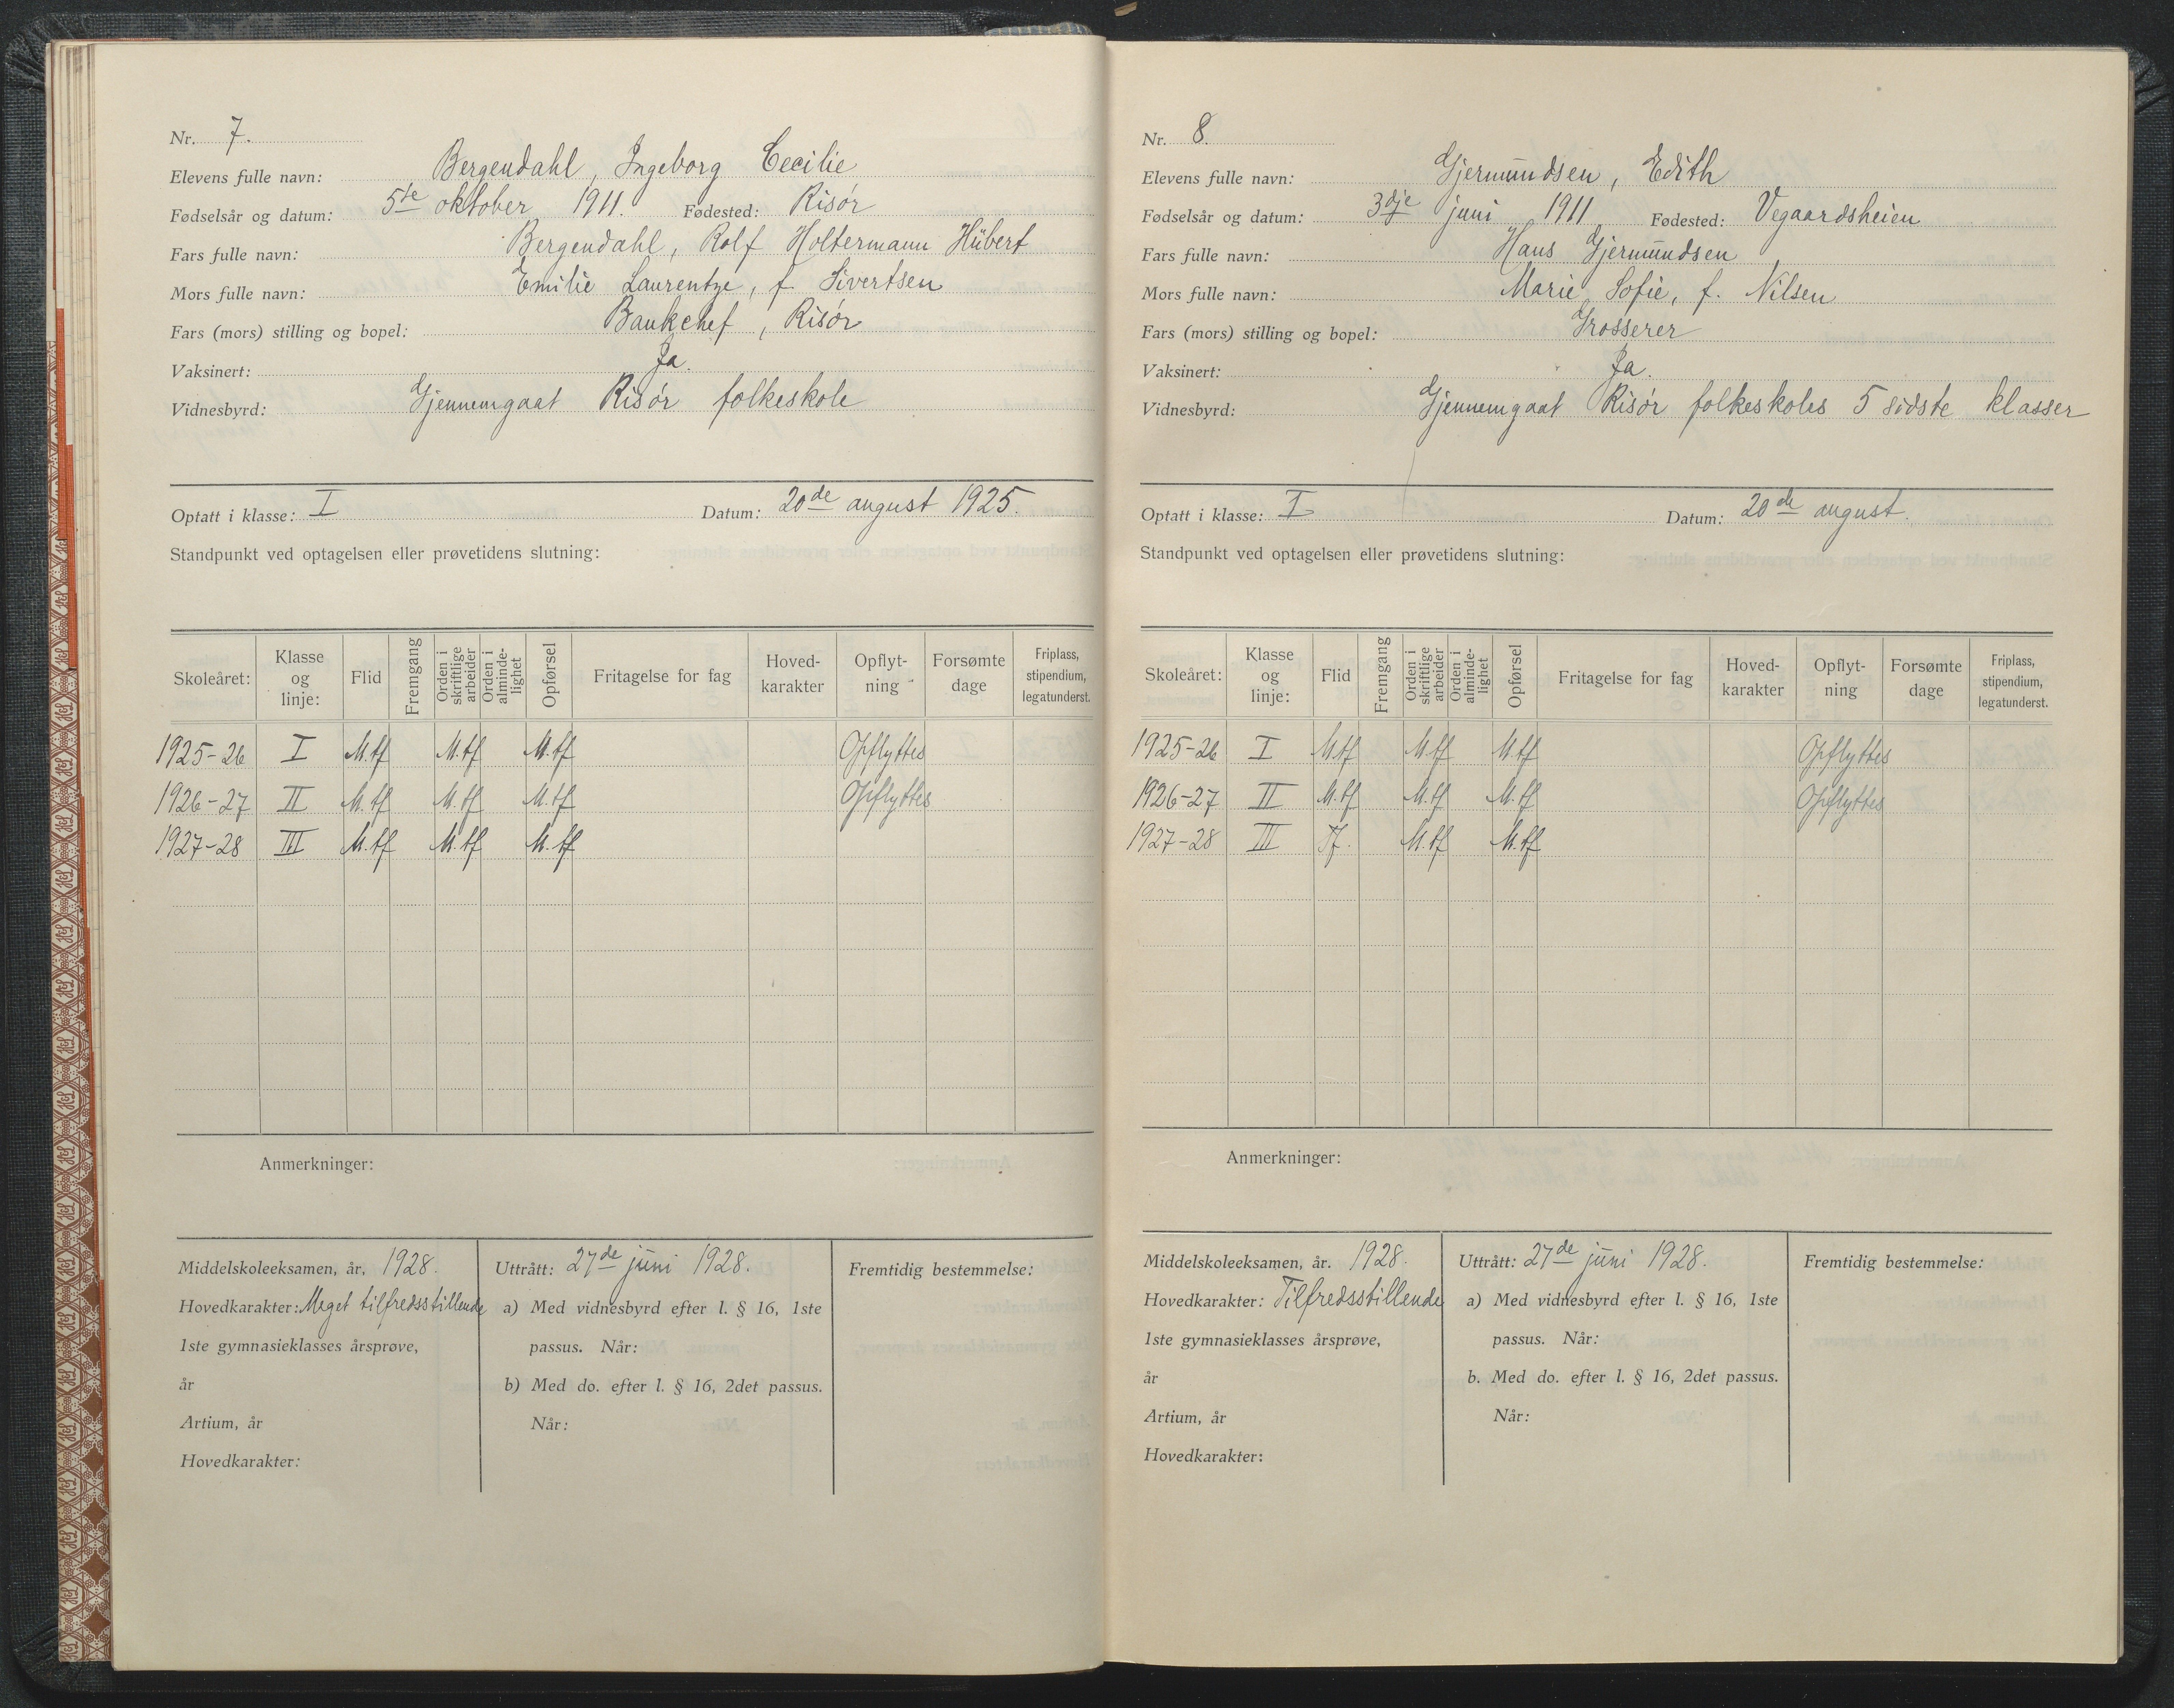 Nr. 7.
Elevens fulle navn: Bergendahl, Ingeborg Cecilie
Fødselsår og datum: 5te oktober 1911. Fødested: Risør
Fars fulle navn: Bergendahl, Rolf Holtermann Hübert
Mors fulle navn: Emilie Laurentze, f. Sivertsen
Fars (mors) stilling og bopel: Bankchef, Risør
Vaksinert: Ja.
Vidnesbyrd: Gjennemgaat Risør folkeskole
Optatt i klasse: I Datum: 20de august 1925.
Standpunkt ved optagelsen eller prøvetidens slutning:
Skoleåret: Klasse og linje: Flid Fremgang Orden i skriftlige arbeider Orden i alminde-lighet Opførsel Fritagelse for fag Hoved-karakter Opflyt-ning Forsømte dage Friplass, stipendium, legatunderst.
1925-26 I M.tf M.tf M.tf Opflyttes
1926-27 II M.tf M.tf M.tf Opflyttes
1927-28 III M.tf M.tf M.tf
Anmerkninger:
Middelskoleeksamen, år. 1928.
Hovedkarakter: Meget tilfredsstillende
1ste gymnasieklasses årsprøve,
år
Artium, år
Hovedkarakter:
Uttrått: 27de juni 1928.
a) Med vidnesbyrd efter l. § 16, 1ste
passus. Når:
b) Med do. efter l. § 16, 2det passus.
Når:
Fremtidig bestemmelse:
Nr. 8.
Elevens fulle navn: Gjermundsen, Edith
Fødselsår og datum: 3dje juni 1911 Fødested: Vegaardsheien
Fars fulle navn: Hans Gjermundsen
Mors fulle navn: Marie Sofie, f. Nilsen
Fars (mors) stilling og bopel: Grosserer
Vaksinert: Ja.
Vidnesbyrd: Gjennemgaat Risør folkeskoles 5 sidste klasser
Optatt i klasse: I Datum: 20de august.
Standpunkt ved optagelsen eller prøvetidens slutning:
Skoleåret: Klasse og linje: Flid Fremgang Orden i skriftlige arbeider Orden i alminde-lighet Opførsel Fritagelse for fag Hoved-karakter Opflyt-ning Forsømte dage Friplass, stipendium, legatunderst.
1925-26 I M.tf M.tf M.tf Opflyttes
1926-27 II M.tf M.tf M.tf Opflyttes
1927-28 III Tf. M.tf M.tf
Anmerkninger:
Middelskoleeksamen, år. 1928.
Hovedkarakter: Tilfredsstillende
1ste gymnasieklasses årsprøve,
år
Artium, år
Hovedkarakter:
Uttrått: 27de juni 1928.
a) Med vidnesbyrd efter l. § 16, 1ste
passus. Når:
b. Med do. efter l. § 16, 2det passus.
Når:
Fremtidig bestemmelse: